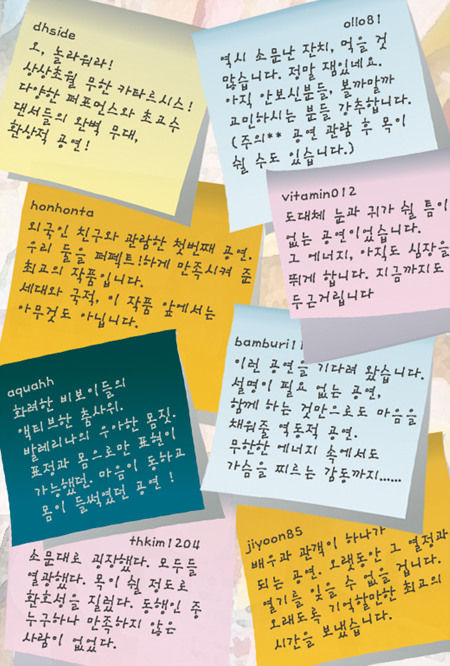 dhside
오, 놀라워라!
상상초월 무한 카타르시스!
다양한 퍼포먼스와 초고수
댄서들의 완벽 무대,
환상적 공연!
ollo81
역시 소문난 잔치, 먹을 것
많습니다. 정말 잼있네요.
아직 안보신분들, 볼까말까
고민하시는 분들 강추합니다.
(주의** 공연 관람 후 목이
쉴 수도 있습니다.)
honhonta
외국인 친구와 관람한 첫번째 공연.
우리 둘을 퍼펙트!하게 만족시켜 준
최고의 작품입니다.
세대와 국적, 이 작품 앞에서는
아무것도 아닙니다.
vitamin012
도대체 눈과 귀가 쉴 틈이
없는 공연이었습니다.
그 에너지, 아직도 심장을
뛰게 합니다. 지금까지도
두근거립니다
bamburi11
이런 공연을 기다려 왔습니다.
설명이 필요 없는 공연,
함께 하는 것만으로도 마음을
채워줄 역동적 공연.
무한한 에너지 속에서도
가슴을 찌르는 감동까지......
aquahh
화려한 비보이들의
액티브한 춤사위.
발레리나의 우아한 몸짓.
표정과 몸으로만 표현이
가능했던. 마음이 동하고
몸이 들썩였던 공연!
thkim1204
소문대로 굉장했다. 모두들
열광했다. 목이 쉴 정도로
환호성을 질렀다. 동행인 중
누구하나 만족하지 않은
사람이 없었다.
jiyoon85
배우과 관객이 하나가
되는 공연. 오랫동안 그 열정과
열기를 잊을 수 없을 겁니다.
오래도록 기억할만한 최고의
시간을 보냈습니다.